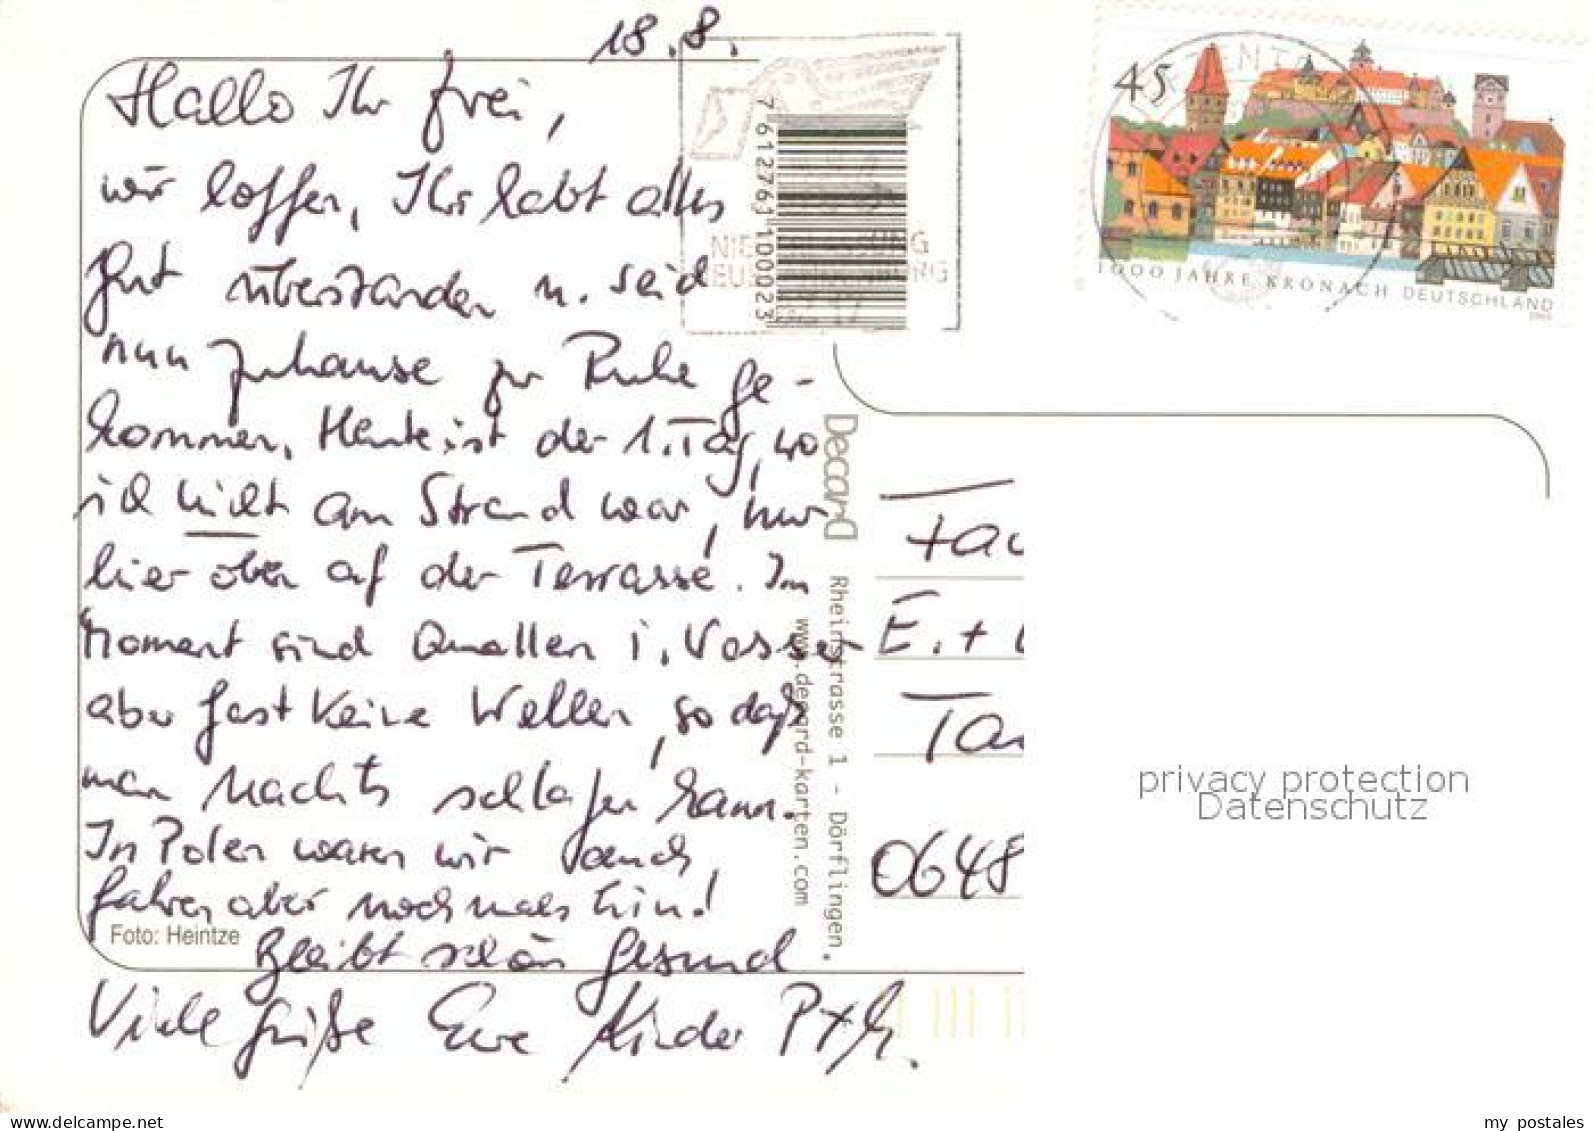 18.8.
Hallo Ihr drei,
wir hoffen, Ihr habt alles
gut überstanden u. seid
nun zuhause zur Ruhe ge-
kommen. Heute ist der 1. Tag, wo
ich nicht am Strand war, nur
hier oben auf der Terrasse. Im
Moment sind Quallen i. Wasser
aber fast keine Wellen, so daß
man nachts schlafen kann.
In Polen waren wir auch,
fahren aber nochmals hin!
Bleibt schön gesund
Viele Grüße Eure Kinder P+G.
Foto: Heintze
7612761100023
DecarD
Rheinstrasse 1 - Dörflingen.
www.decard-karten.com
45
1000 JAHRE KRONACH DEUTSCHLAND
E. +
0648
privacy protection
Datenschutz
www.delcampe.net
my postales